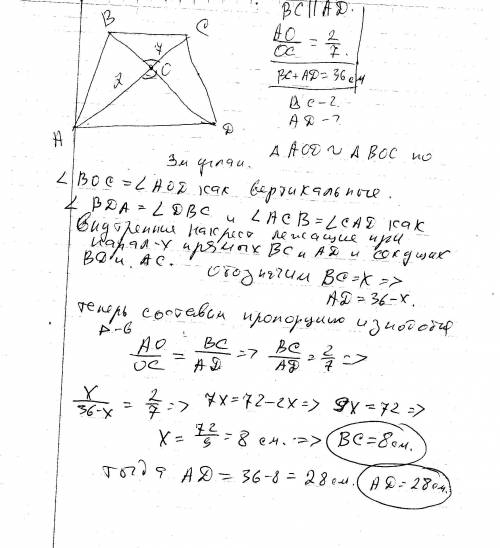 BC || AD.
AO/OC = 2/7
BC+AD=36 см
BC-?
AD-?
B
C
7
2
O
A
D
Δ AOD ~ Δ BOC по
3м углам.
∠ BOC = ∠ AOD как вертикальные.
∠ BDA = ∠ DBC и ∠ ACB = ∠ CAD как
внутренние накрест лежащие при
парал-х прямых BC и AD и секущих
BD и AC.
обозначим BC=x =>
AD=36-x.
теперь составим пропорцию из подобия
Δ-в
AO/OC = BC/AD => BC/AD = 2/7 =>
x/36-x = 2/7 => 7x=72-2x => 9x=72 =>
x = 72/9 = 8 см. => BC=8см.
тогда AD = 36-8 = 28см. AD=28см.